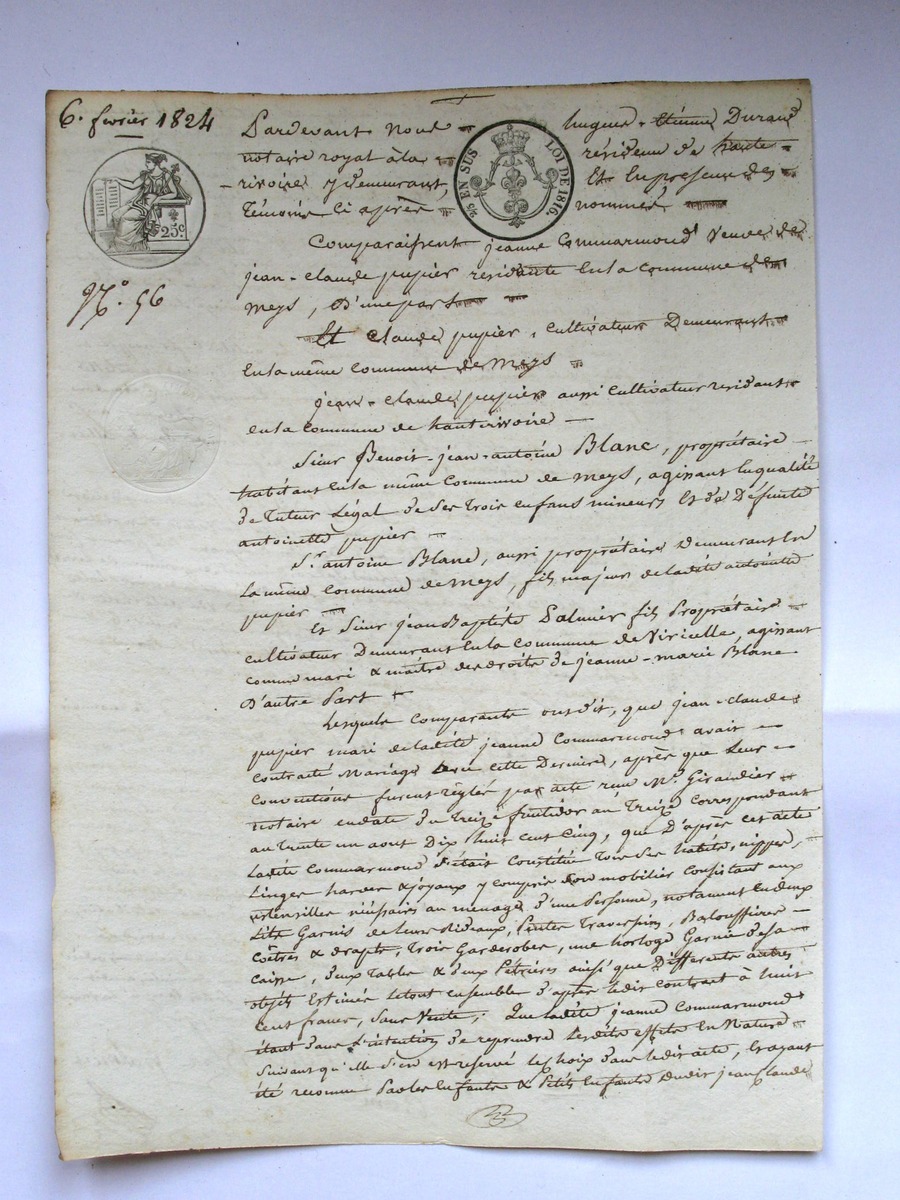 6. février 1824
Pardevant Nous hugues-étienne Durand
notaire royal à la résidence de haute
rivoire y demeurant, Et En presence des
Témoins Ci après nommés,
⅖ EN SUS LOI DE 1816.
25c.
N.º 56
Comparaissent jeanne Commarmond Veuve de
jean-claude pupier residante En la commune de
Meys, D'une part
Et Claude pupier, Cultivateur Demeurant
En la même Commune de Meys
jean-claude pupier aussi Cultivateur residant
En la Commune de hauterivoire
Sieur Benoit-jean-antoine Blanc, propriétaire
habitant En la même Commune de Meys, agissant En qualité
de Tuteur Légal de Ses Trois enfans mineurs Et de Défunte
antoinette pupier
S.r antoine Blanc, aussi propriétaire Demeurant En
La même Commune de Meys, fils majeur de ladite antoinette
pupier
Et Sieur jean Baptiste Palmier fils Propriétaire
Cultivateur Demeurant En la Commune de Viricelle, agissant
comme mari & maître des droits de jeanne-marie Blanc
D'autre Part
Lesquels Comparants ont dit, que jean-claude
pupier mari de ladite jeanne Commarmond avait
Contracté Mariage avec cette Derniere, après que Leurs
Conventions furent réglés par acte reçu M.e Giraudier
notaire en date du Treize fructidor an Treize Correspondant
au Trente un aout Dix huit cent Cinq, que D'après cet acte
Ladite Commarmond s'était Constituée Tous Ses habits, nippes,
Linges hardes & joyaux y compris Son mobilier Consistant aux
ustensilles nécéssaires au menage d'une Personne, notament En deux
Lits Garnis de Leurs rideaux, Traversins, Balouffieres
Coêtres & draps, Trois Garderobes, une horloge Garnie de sa
Caisse, deux Tables & deux Pétrieres ainsi que Differents autres
objets Estimés Le tout ensemble d'après ledit Contract à huit
Cent francs, Sans Vente; Que ladite jeanne Commarmond
étant dans L'intention de reprendre Lesdits effets En Nature
Suivant qu'elle s'en est reservé le choix dans ledit acte, Et ayant
été reconnu Par les Enfants & Petits Enfants dudit jean Claude